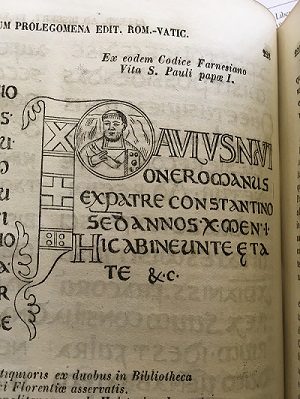 UM PROLEGOMENA EDIT. ROM.-VATIC.
Ex eodem Codice Farnesiano
Vita S. Pauli papæ I.
PAULUSNATI
ONEROMANUS
EXPATRE CONSTANTINO
SEDANNOS·X·MEN·I·
HICABINEUNTE ETA
TE &·C·
tiquioris ex duobus in Bibliotheca
ri Florentiæ asservatis.